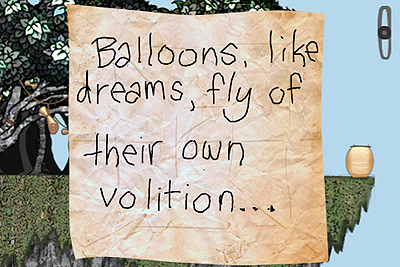 Balloons, like
dreams, fly of
their own
volition...